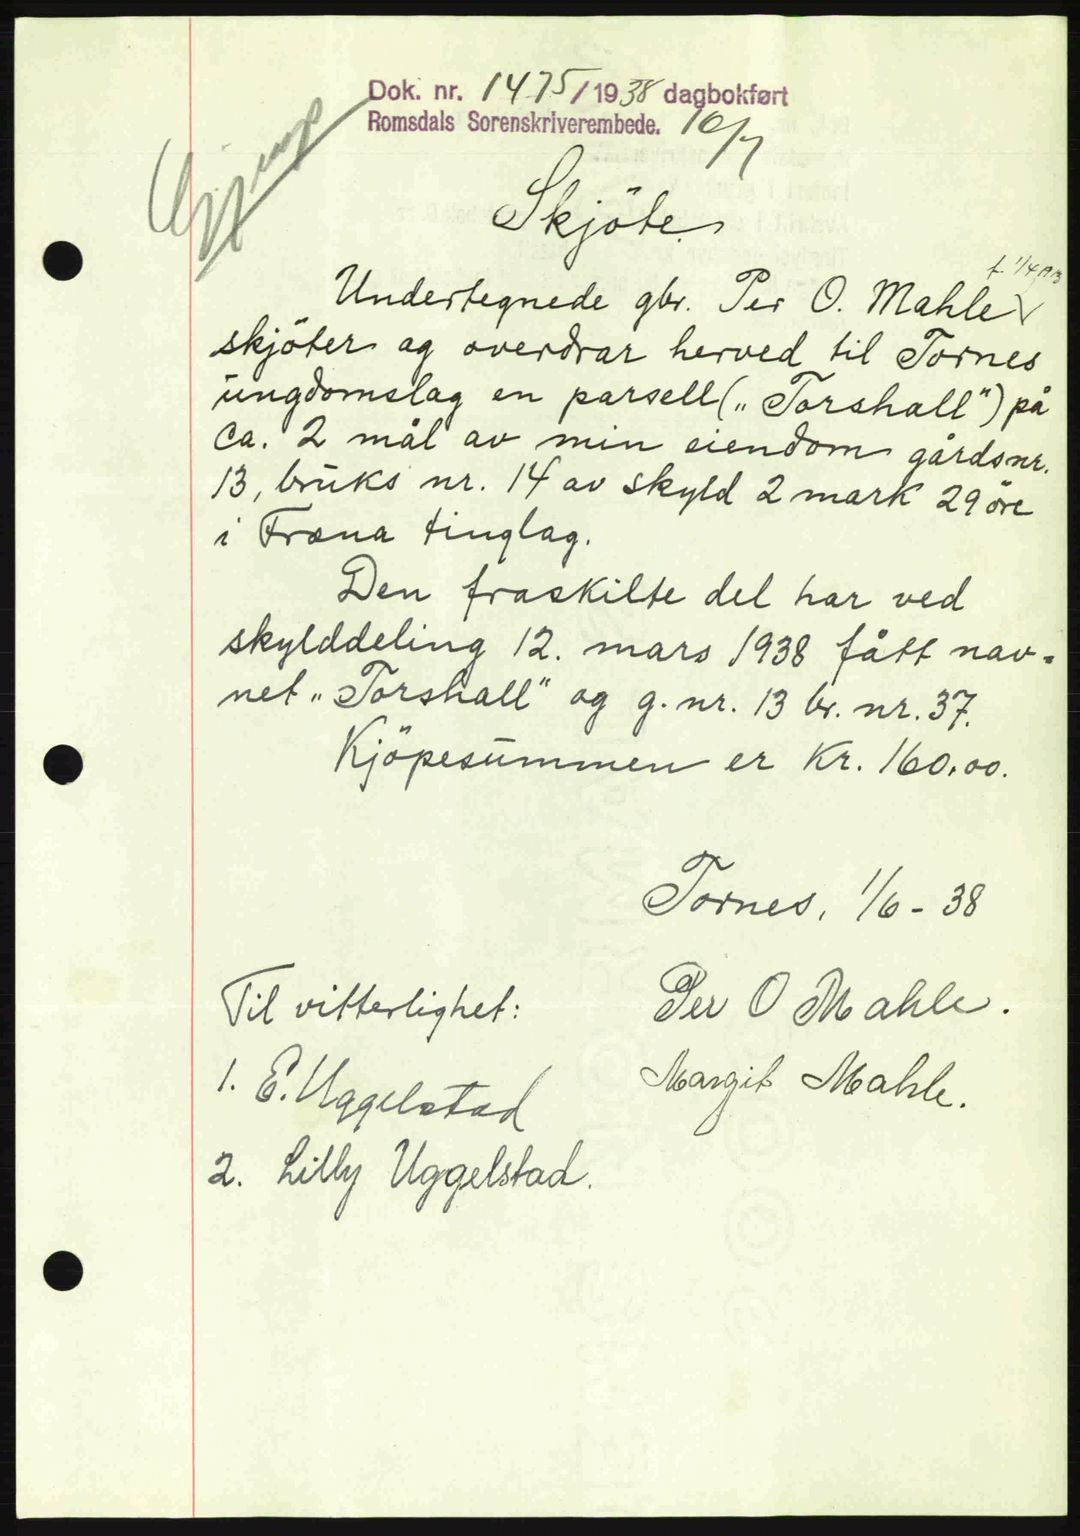 Dok. nr. 1475/1938 dagbokført
Romsdals Sorenskriverembede. 16/7
Skjöte.
Undertegnede gbr. Per O. Mahle
skjöter og overdrar herved til Tornes
ungdomslag en parsell („Torshall“) på
ca. 2 mål av min eiendom gårdsnr.
13, bruks nr. 14 av skyld 2 mark 29 öre
i Fræna tinglag.
Den fraskilte del har ved
skylddeling 12. mars 1938 fått nav-
net „Torshall“ og g. nr. 13 br. nr. 37.
Kjöpesummen er Kr. 160,00.
Tornes, 1/6 - 38
Til vitterlighet:
Per O Mahle.
1. E. Uggelstad
Margit Mahle.
2. Lilly Uggelstad.